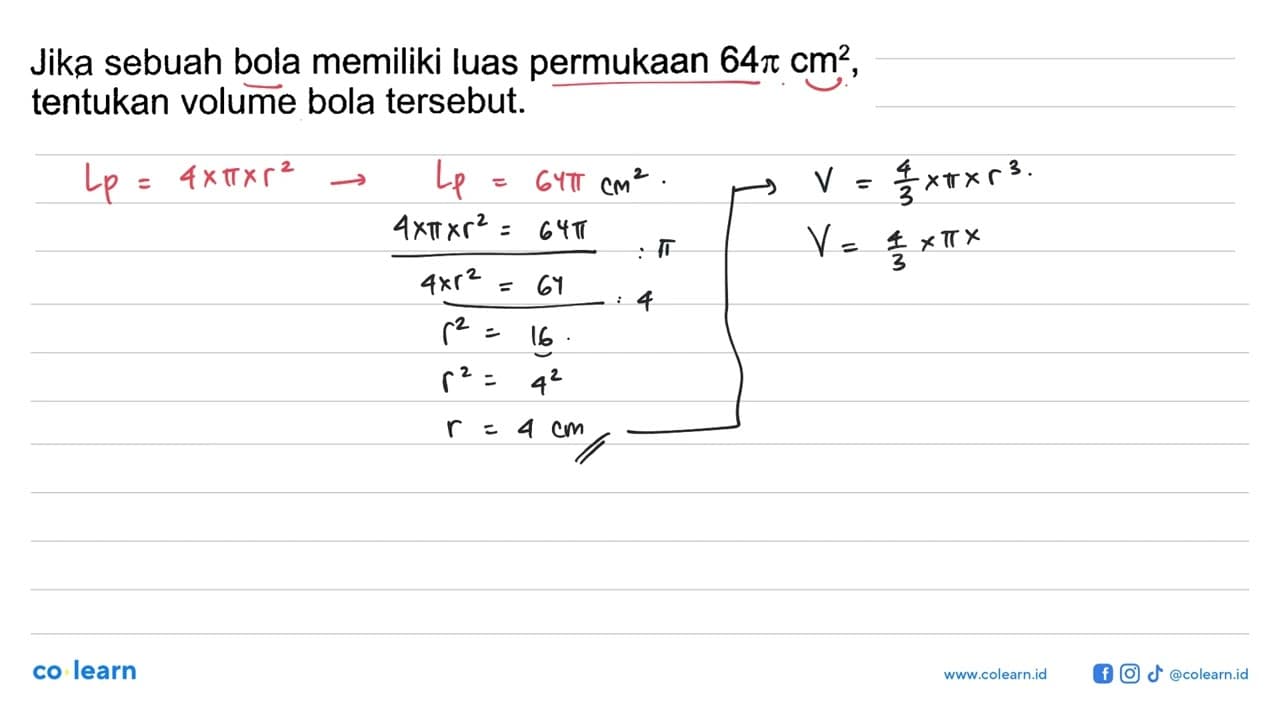 Jika sebuah bola memiliki luas permukaan 64π cm²,
tentukan volume bola tersebut.
Lp = 4×π×r² → Lp = 64π cm².
4×π×r² = 64π
: π
4×r² = 64
: 4
r² = 16.
r² = 4²
r = 4 cm
V = 4/3 ×π×r³.
V = 4/3 ×π×
co learn
www.colearn.id @colearn.id